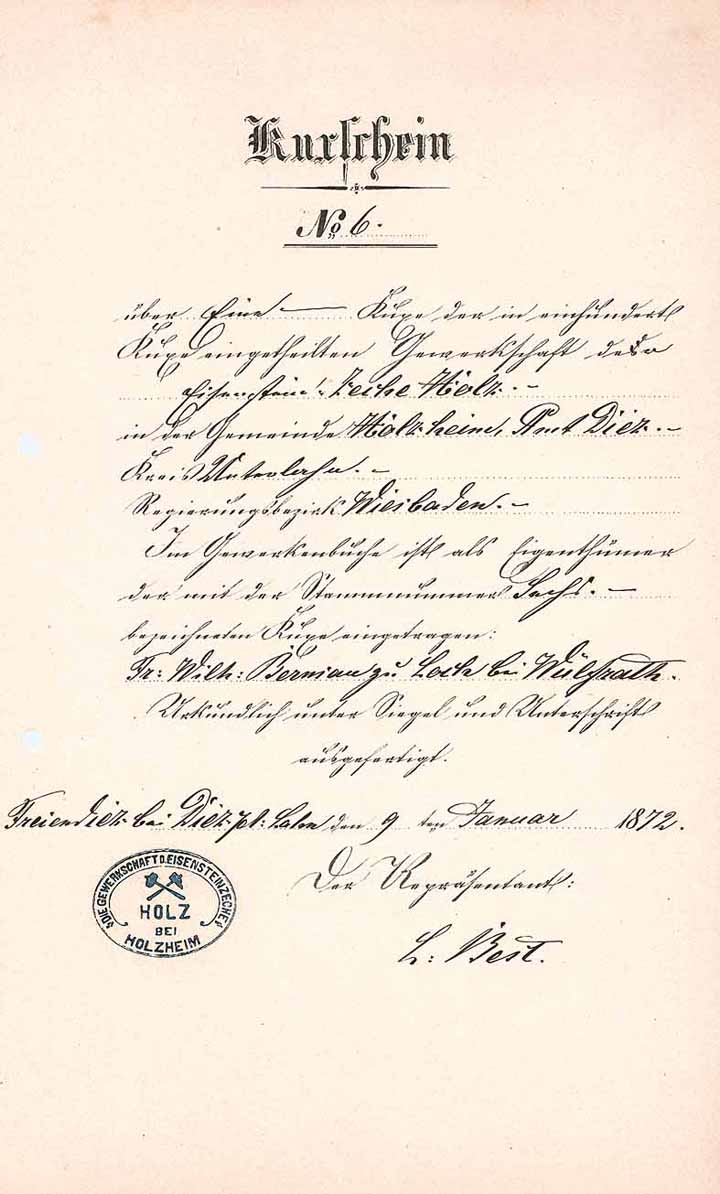 Kuxschein
No 6.
über Eine — Kuxe der in einhundert
Kuxe eingetheilten Gewerkschaft der
Eisenstein-Zeche Holz. –
in der Gemeinde Holzheim, Amt Diez. –
Kreis Unterlahn. –
Regierungsbezirk Wiesbaden. –
Im Gewerkenbuche ist als Eigenthümer
der mit der Stammnummer Sechs. –
bezeichneten Kuxe eingetragen:
Fr: Wilh: Bernsau zu Loch bei Wülfrath.
Urkundlich unter Siegel und Unterschrift
ausgefertigt.
Freiendiez bei Diez a/d. Lahn den 9 ten Januar 1872.
Der Repräsentant:
DIE GEWERKSCHAFT D. EISENSTEINZECHE
HOLZ
BEI
HOLZHEIM
L: Best.